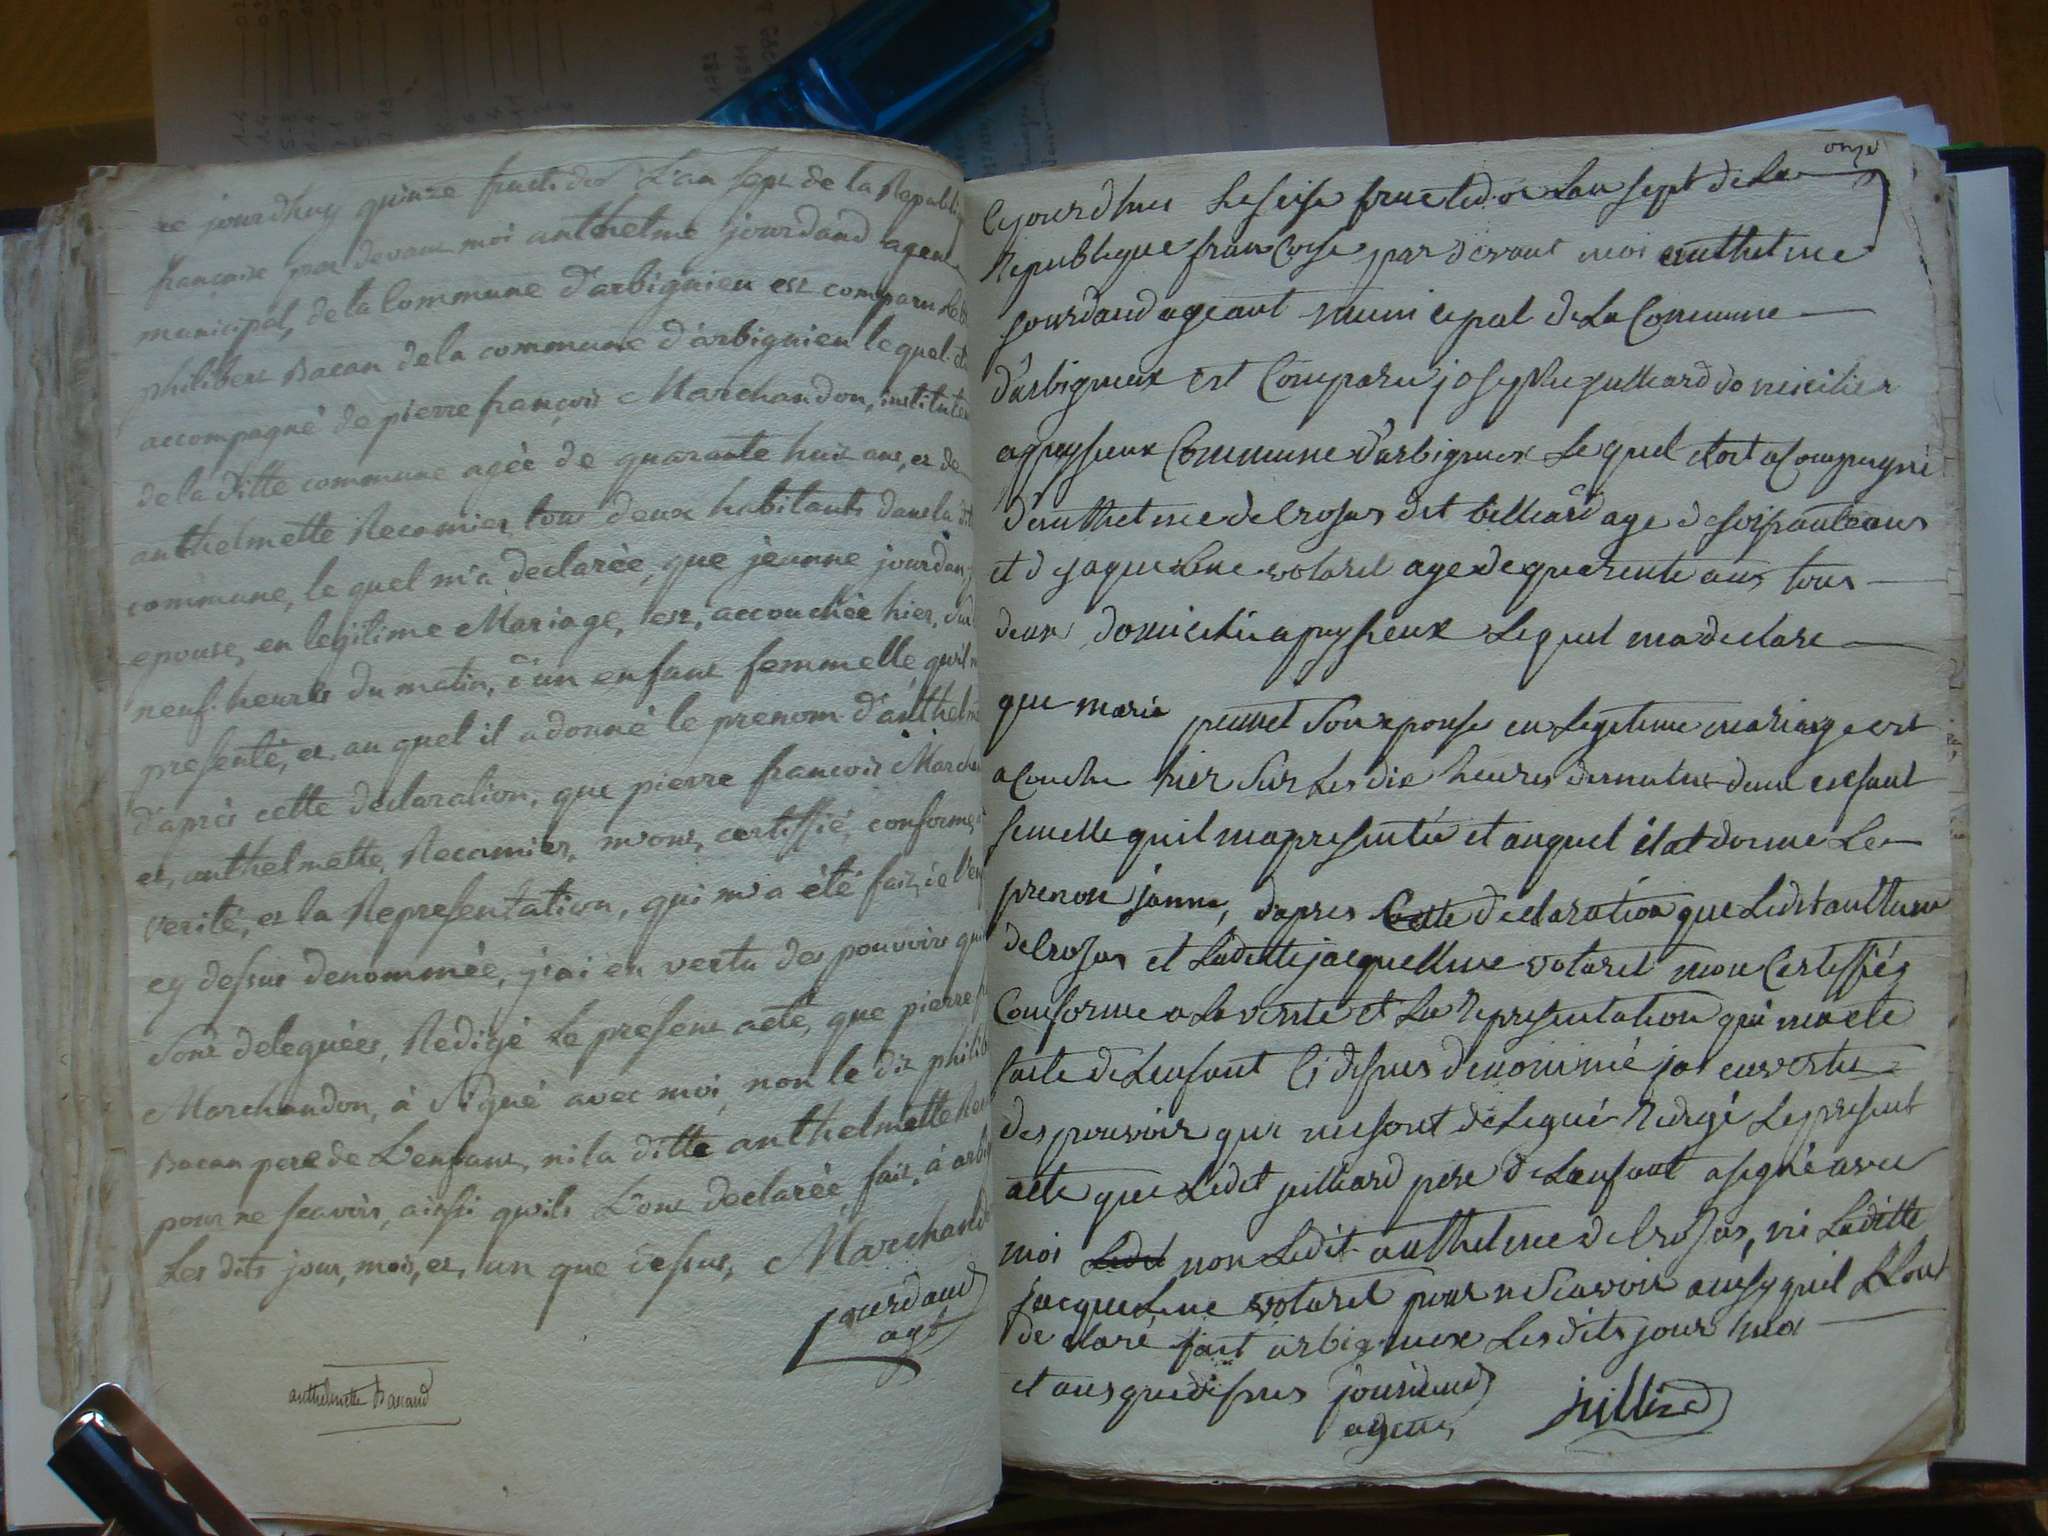 ce jourdhuy quinze fructidor L'an sept de la Republi
française par devant moi anthelme jourdand agent
municipal, de la Commune d'arbignieu est comparu le
philibert Bacan de la commune d'arbignieu lequel
accompagné de pierre françois Marchandon, institute
de la ditte commune agèe de quarante huit ans, et de
anthelmette Recamier, tous deux habitants dans la dit
commune, le quel m'a declarèe, que jeanne jourdan,
epouse, en legitime Mariage, est, accouchèe hier, sur
neuf heures du matin, d'un enfant femmelle, qu'il m
presenté, et, au quel il a donné le prenom d'anthelme
d'après cette declaration, que pierre françois March
et, anthelmette, Recamier, m'ont, certiffié, conforme,
verité, et la Representation, qui m'a été fait, de l'en
cy dessus denommèe, j'ai en vertu des pouvoirs qui
sont deleguées, Redigé Le present acte, que pierre f
Marchandon, à signé avec moi, non le dit philib
Bacan pere de L'enfant, ni la ditte anthelmette Rec
pour ne scavoir, ainsi qu'ils L'ont declarèe, fait, à arbi
Les dits jour, mois, et, an que dessus, Marchand
jourdand
agt
anthelmette Bacand
onze
Cejourdhui Leseise fructidor Lan sept de La
Republique francoise par devant moi anthelme
jourdand ageant municipal de La Commune
d'arbignieux est Comparu joseph juilliard domicilier
a peysieux Commune d'arbignieux Lequel etoit acompagné
d'anthelme delrosas dit billiard age de soisante ans
et de jaqueline votaret age de quarente ans tous
deux domicilié a peysieux Lequel ma declare
que maria peunet son epouse en Legitime mariage est
acouche hier sur Les dix heures du matin dun enfant
femelle quil ma presentée et auquel il at donne Le
prenon janne, dapres Cette declaration que Ledit anthelme
delrosas et Laditte jacqueline votaret mon Certiffiés
Conforme a La verite et La Representation qui ma ete
faite de Lenfant Ci desus denommé jai en vertu
des pouvoir qui me sont délegué redigé Le present
acte que Ledit juilliard pere de Lenfant a signé avec
moi Ledit non Ledit anthelme delrosas, ni Laditte
jacqueline votaret pour ne scavoir ainsy quil Lont
declaré fait arbignieux Les dits jour moi
et ans que desus jourdand juilliard
agent